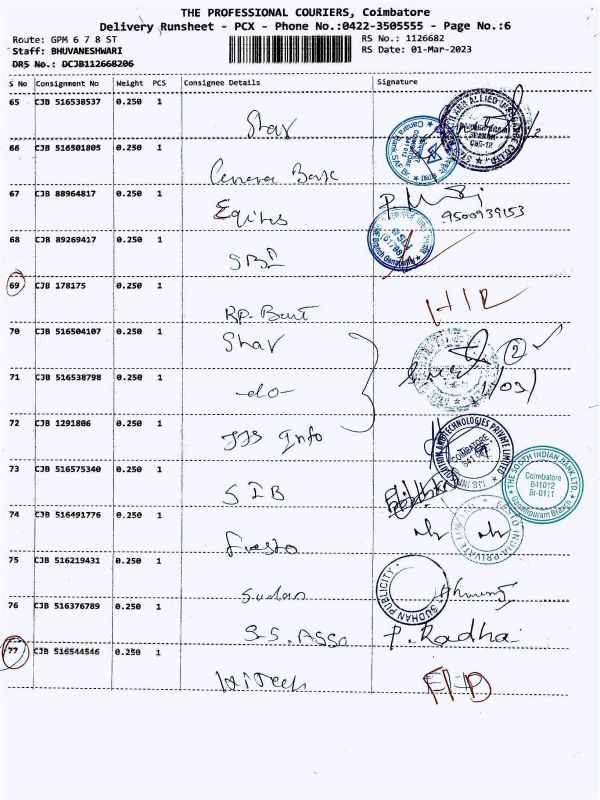 THE PROFESSIONAL COURIERS, Coimbatore
Delivery Runsheet - PCX - Phone No.:0422-3505555 - Page No.:6
Route: GPM 6 7 8 ST
RS No.: 1126682
Staff: BHUVANESHWARI
RS Date: 01-Mar-2023
DRS No.: DCJB112668206
S No Consignment No Weight PCS Consignee Details Signature
65 CJB 516538537 0.250 1
Star
66 CJB 516501805 0.250 1
Canara Bank
67 CJB 88964817 0.250 1
Equitas
9500939153
68 CJB 89269417 0.250 1
SBI
69 CJB 178175 0.250 1
70 CJB 516504107 0.250 1
Star
2
71 CJB 516538798 0.250 1
-do-
72 CJB 1291806 0.250 1
IJS Info
COIMBATORE
73 CJB 516575340 0.250 1
SIB
THE SOUTH INDIAN BANK LTD.
Coimbatore
641012
Br-0111
74 CJB 516491776 0.250 1
75 CJB 516219431 0.250 1
Sudan
SUDHAN PUBLICITY
76 CJB 516376789 0.250 1
S-S. ASSO
P. Radhai
77 CJB 516544546 0.250 1